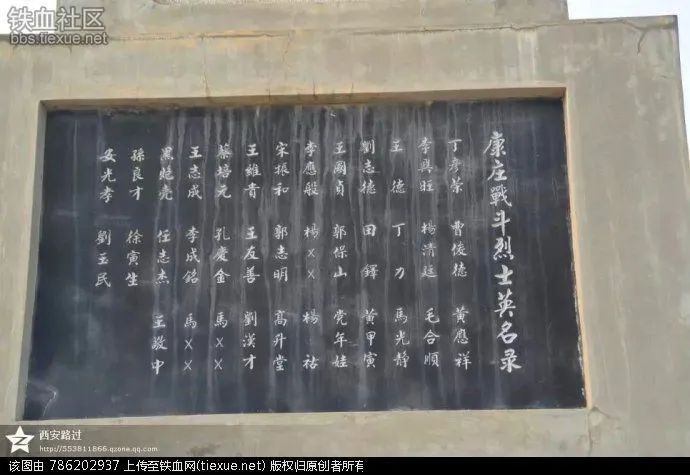 铁血社区
bbs.tiexue.net
康庄戰斗烈士英名录
丁彦荣 曹俊德 黄應祥
李興旺 楊清廷 毛合順
王德 丁力 馬光靜
劉志德 田鐸 黄甲寅
王國貞 郭保山 党年娃
李應般 楊×× 楊祜
宋振和 郭志明 高升堂
王維貴 王友善 劉漢才
蔡培元 孔慶金 馬××
王志成 李成銘 馬××
黑曉亮 任志杰 王敬中
孫良才 徐寅生
安光孝 劉玉民
西安路过
http://553811866.qzone.qq.com
该图由 786202937 上传至铁血网(tiexue.net) 版权归原创者所有